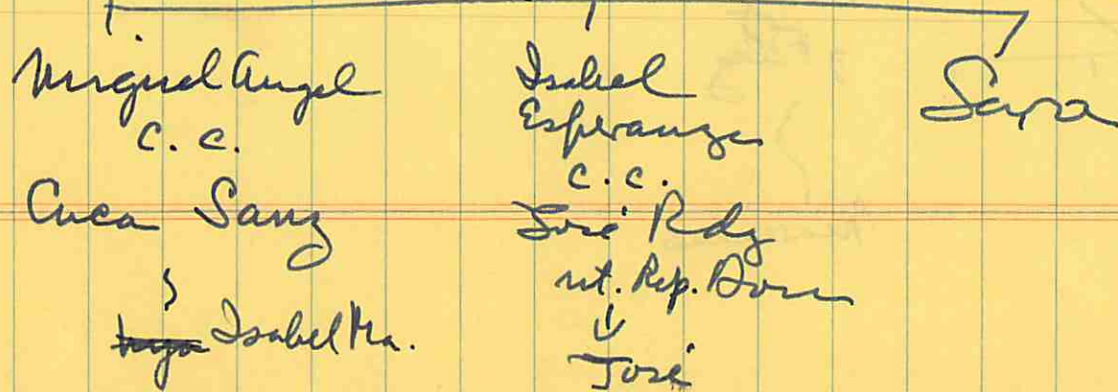 Miguel Angel
c. c.
Cuca Sanz
Isabel Ma.
Isabel
Esperanza
c. c.
José Rdz
nt. Rep. Dom
José
Sara